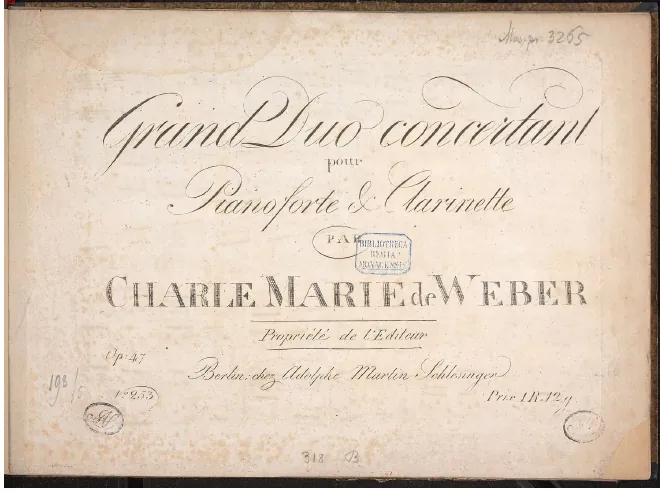 Mus. pr. 3265
Grand Duo concertant
pour
Pianoforte & Clarinette
PAR
BIBLIOTHECA
REGIA
MONACENSIS
CHARLE MARIE de WEBER
Propriété de l'Editeur
Op. 47
Berlin, chez Adolphe Martin Schlesinger
198/5
No 253
Prix 1 R. 12 g
318 B